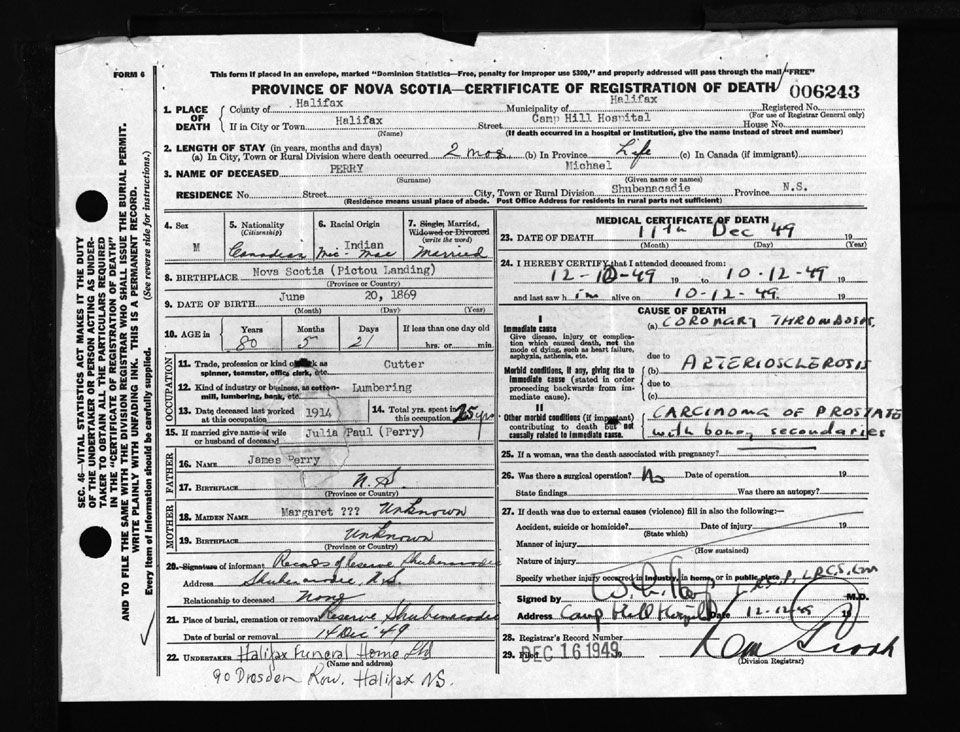 FORM 6
This form if placed in an envelope, marked "Dominion Statistics—Free, penalty for improper use $300," and properly addressed will pass through the mail "FREE"
PROVINCE OF NOVA SCOTIA—CERTIFICATE OF REGISTRATION OF DEATH
006243
1. PLACE OF DEATH
County of Halifax Municipality of Halifax Registered No.
(For use of Registrar General only)
If in City or Town Halifax Street Camp Hill Hospital House No.
(Name) (If death occurred in a hospital or institution, give the name instead of street and number)
2. LENGTH OF STAY (in years, months and days)
(a) In City, Town or Rural Division where death occurred 2 mos. (b) In Province Life (c) In Canada (if immigrant)
3. NAME OF DECEASED PERRY Michael
(Surname) (Given name or names)
RESIDENCE No. Street City, Town or Rural Division Shubenacadie Province N.S.
(Residence means usual place of abode. Post Office Address for residents in rural parts not sufficient)
4. Sex
M
5. Nationality
(Citizenship)
Canadian
6. Racial Origin
Indian
Mic-Mac
7. Single, Married,
Widowed or Divorced
(write the word)
Married
8. BIRTHPLACE Nova Scotia (Pictou Landing)
(Province or Country)
9. DATE OF BIRTH June 20, 1869
(Month) (Day) (Year)
10. AGE in
Years Months Days If less than one day old
80 5 21 hrs. or min.
OCCUPATION
11. Trade, profession or kind of work as
spinner, teamster, office clerk, etc. Cutter
12. Kind of industry or business, as cotton-
mill, lumbering, bank, etc. Lumbering
13. Date deceased last worked
at this occupation 1914
14. Total yrs. spent in
this occupation 25 yrs
15. If married give name of wife
or husband of deceased Julia Paul (Perry)
FATHER
16. NAME James Perry
17. BIRTHPLACE N.S.
(Province or Country)
MOTHER
18. MAIDEN NAME Margaret ??? Unknown
19. BIRTHPLACE Unknown
(Province or Country)
20. Signature of informant Records of Reserve Shubenacadie
Address Shubenacadie, N.S.
Relationship to deceased None
21. Place of burial, cremation or removal Reserve Shubenacadie
Date of burial or removal 14 Dec '49
22. UNDERTAKER Halifax Funeral Home Ltd
(Name and address)
90 Dresden Row. Halifax NS.
MEDICAL CERTIFICATE OF DEATH
23. DATE OF DEATH 11th Dec 49 19
(Month) (Day) (Year)
24. I HEREBY CERTIFY that I attended deceased from:
12-10-49 to 10-12-49
and last saw him alive on 10-12-49 19
CAUSE OF DEATH
I
Immediate cause
Give disease, injury or complication which caused death, not the mode of dying, such as heart failure, asphyxia, asthenia, etc.
(a) CORONARY THROMBOSIS
due to
Morbid conditions, if any, giving rise to immediate cause (stated in order proceeding backwards from immediate cause).
(b) ARTERIOSCLEROSIS
due to
(c)
II
Other morbid conditions (if important) contributing to death but not causally related to immediate cause.
CARCINOMA OF PROSTATE
with boney secondaries
25. If a woman, was the death associated with pregnancy?
26. Was there a surgical operation? No Date of operation 19
State findings Was there an autopsy?
27. If death was due to external causes (violence) fill in also the following:—
Accident, suicide or homicide? Date of injury 19
(State which)
Manner of injury
(How sustained)
Nature of injury
Specify whether injury occurred in industry, in home, or in public place
Signed by M.D.
Address Camp Hill Hospital Date 12-12-49 19
28. Registrar's Record Number
29. Filed DEC 16 1949
(Division Registrar)
SEC. 46—VITAL STATISTICS ACT MAKES IT THE DUTY
OF THE UNDERTAKER OR PERSON ACTING AS UNDER-
TAKER TO OBTAIN ALL THE PARTICULARS REQUIRED
IN THE "CERTIFICATE OF REGISTRATION OF DEATH"
AND TO FILE THE SAME WITH THE DIVISION REGISTRAR WHO SHALL ISSUE THE BURIAL PERMIT.
WRITE PLAINLY WITH UNFADING INK. THIS IS A PERMANENT RECORD.
Every item of information should be carefully supplied. (See reverse side for instructions.)